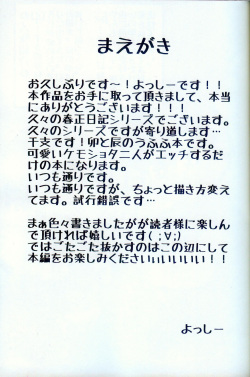 まえがき
お久しぶりです〜！よっしーです！！
本作品をお手に取って頂きまして、本当
にありがとうございます！！！
久々の春正日記シリーズでございます。
久々のシリーズですが寄り道します…
干支です！卯と辰のうふふ本です。
可愛いケモショタ二人がエッチするだ
けの本になります。
いつも通りです。
いつも通りですが、ちょっと描き方変え
てます。試行錯誤です…
まぁ色々書きましたがが読者様に楽しん
で頂ければ嬉しいです( ;∀;)
ではごたごた抜かすのはこの辺にして
本編をお楽しみくださいぃいいいい！！
よっしー